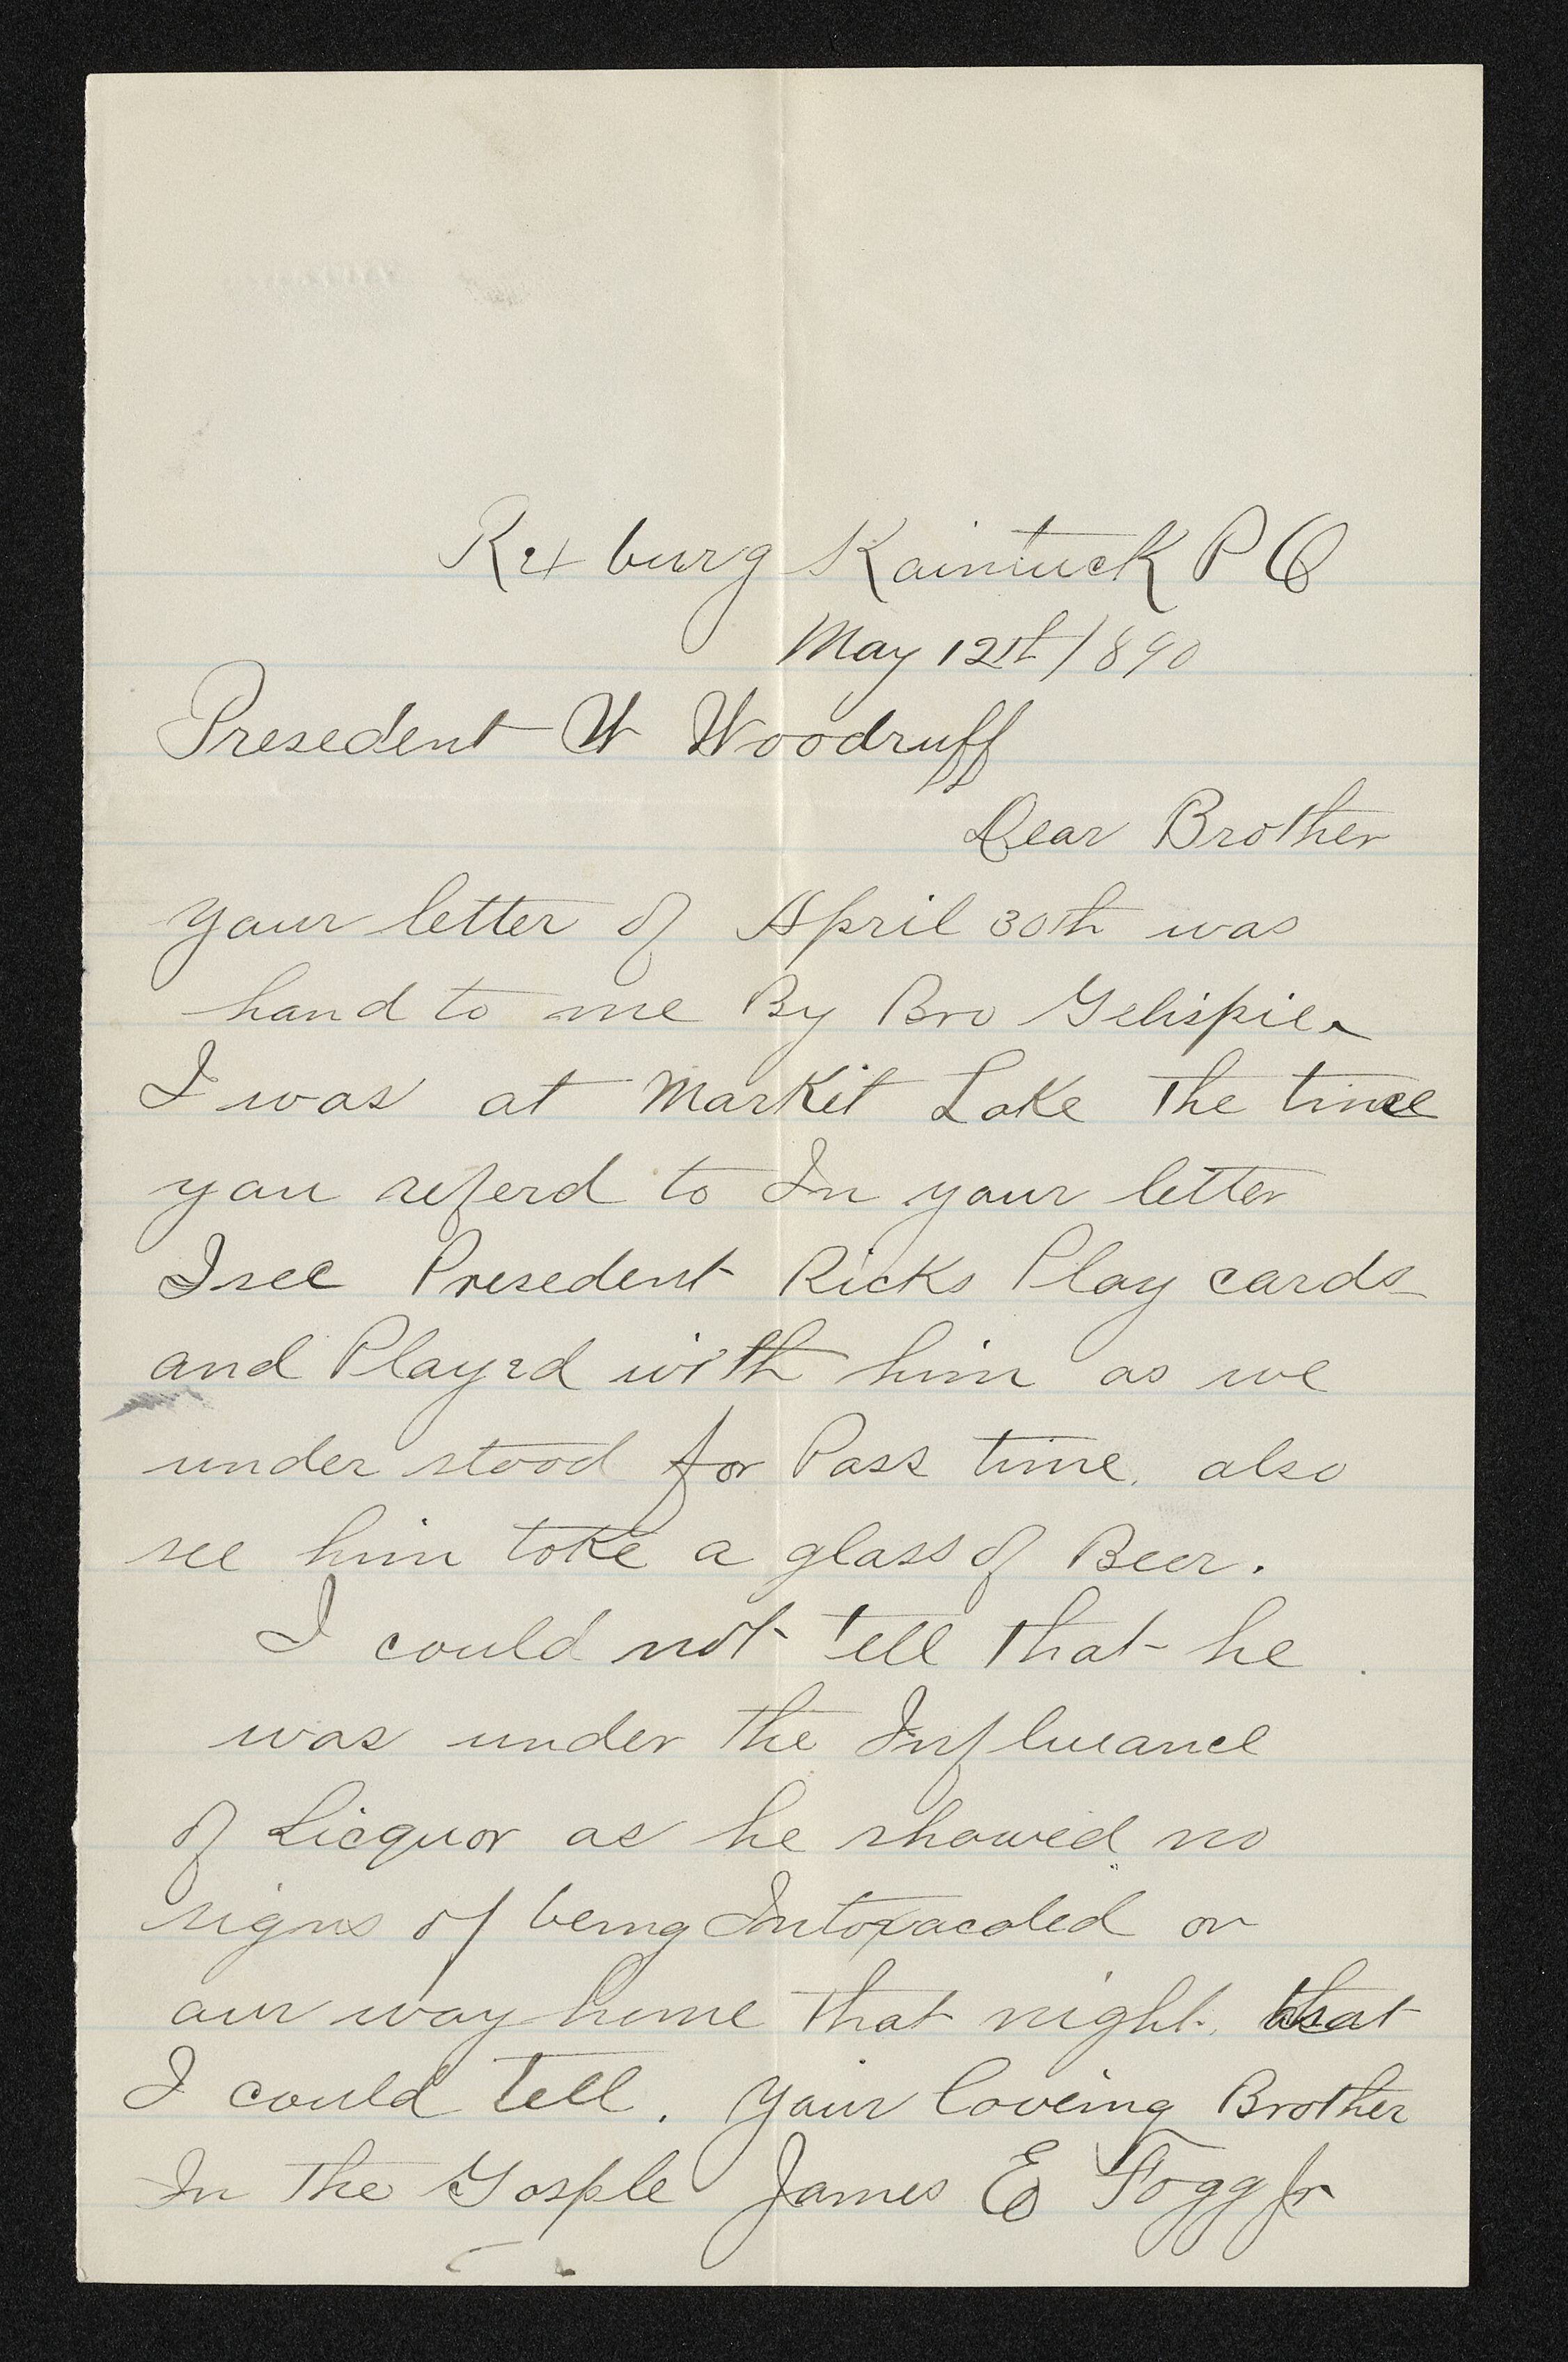 Rexburg Kaintuck P O
May 12th / 890
Presedent W Woodruff
Dear Brother
your letter of April 30th was
hand to me By Bro Gelispie
I was at Markit Lake The time
you referd to In your letter
I see Presedent Ricks Play cards
and Played with him as we
under stood for Pass time. also
see him take a glass of Beer.
I could not tell that he
was under the Influeance
of Licquor as he showed no
signs of being Intoxacated on
our way home that night. that
I could Tell. your loveing Brother
In The Gosple James E Fogg Jr